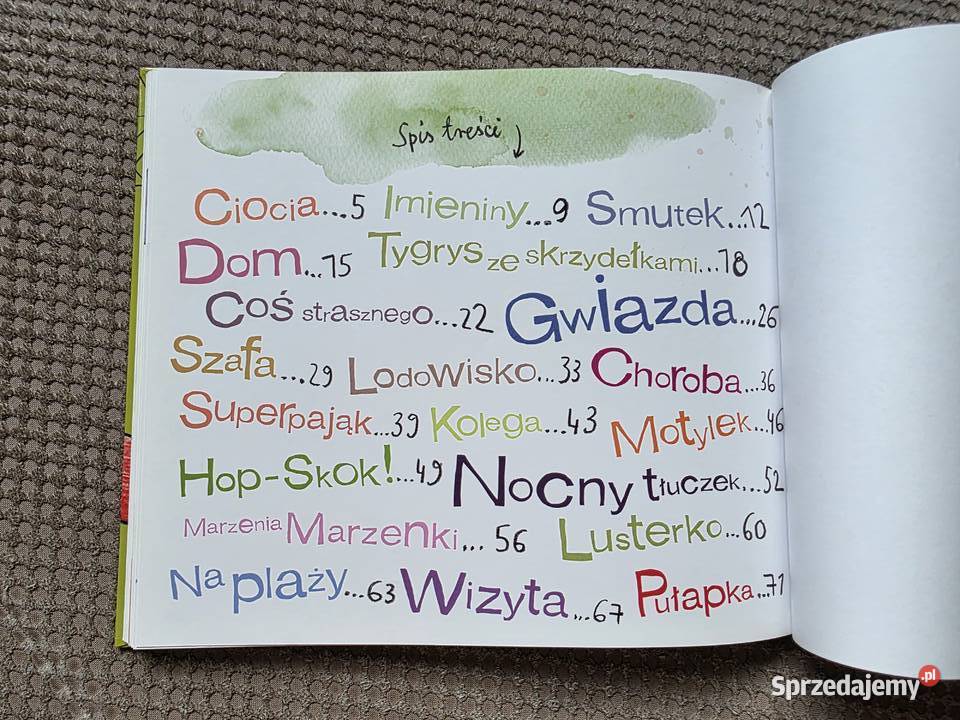 Spis treści
Ciocia...5 Imieniny...9 Smutek...12
Dom...15 Tygrys ze skrzydełkami...18
Coś strasznego...22 Gwiazda...26
Szafa...29 Lodowisko...33 Choroba...36
Superpająk...39 Kolega...43 Motylek...46
Hop-Skok!...49 Nocny tłuczek...52
Marzenia Marzenki... 56 Lusterko...60
Na plaży...63 Wizyta...67 Pułapka...71
Sprzedajemy.pl